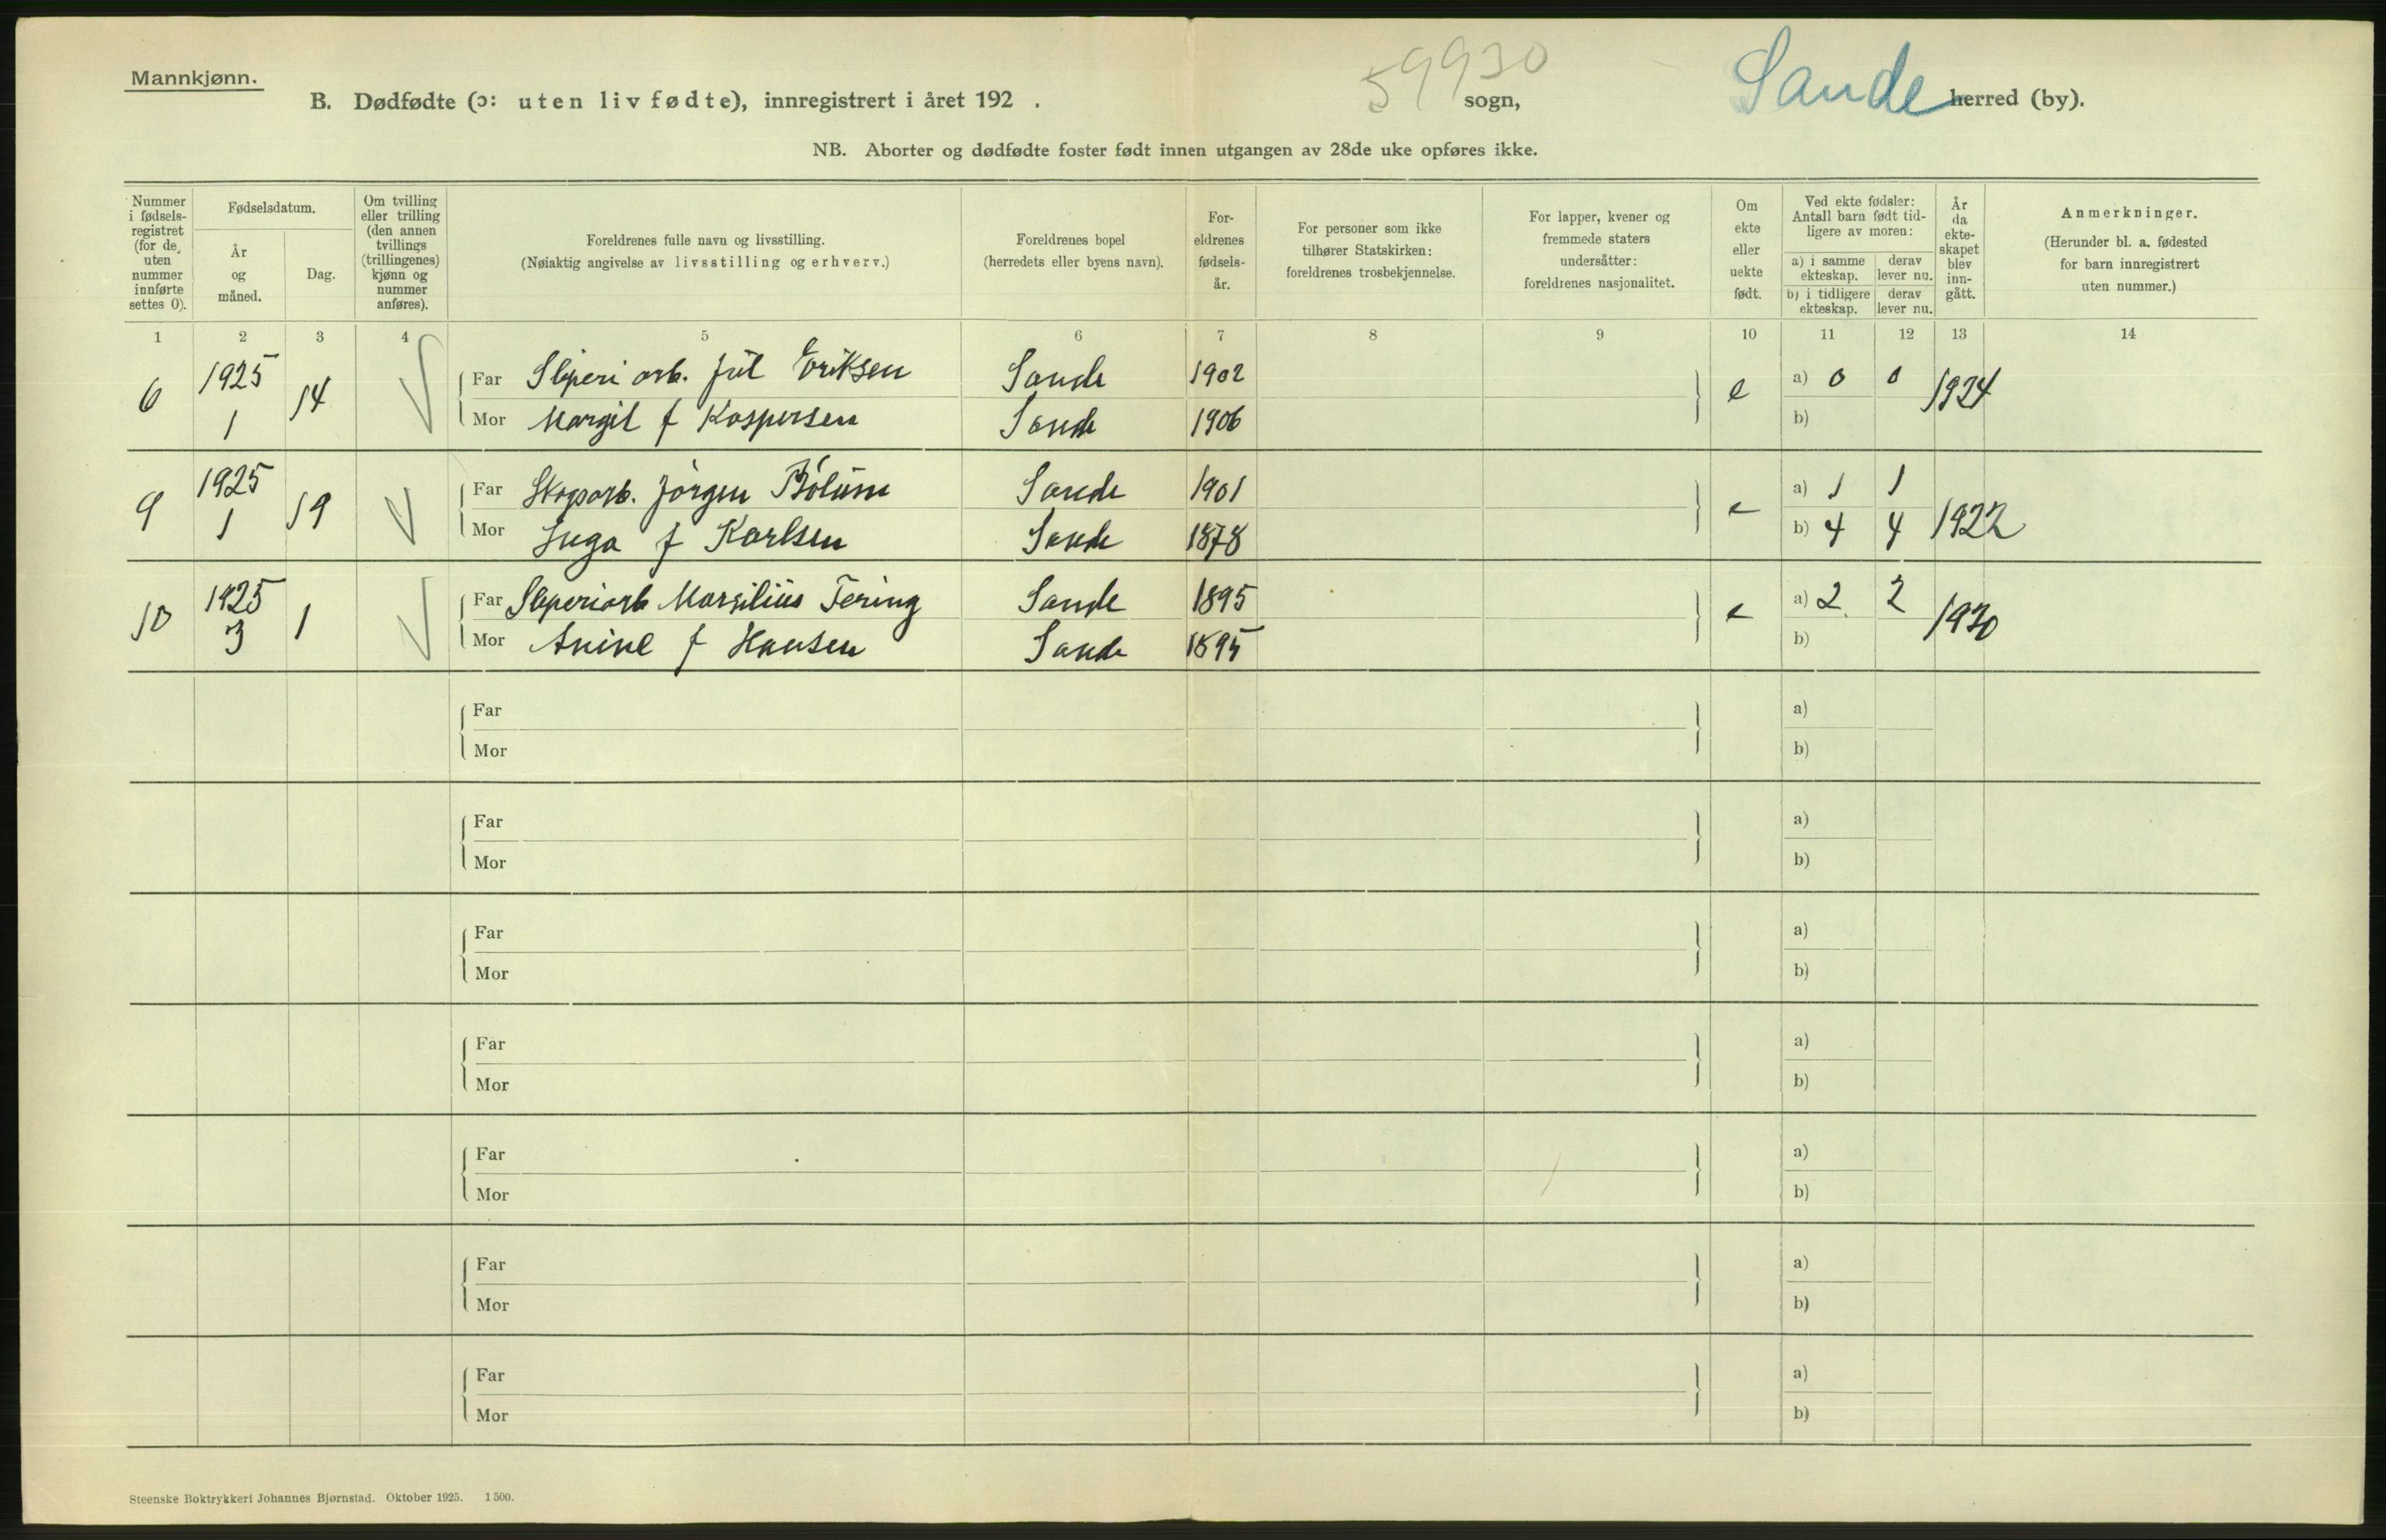 Mannkjønn.
59930
Sande
B. Dødfødte (ɔ: uten liv fødte), innregistrert i året 192 . sogn, herred (by).
NB. Aborter og dødfødte foster født innen utgangen av 28de uke opføres ikke.
Nummer i fødsels- registret (for de uten nummer innførte settes 0).
Fødselsdatum.
År og måned.
Dag.
Om tvilling eller trilling (den annen tvillings (trillingenes) kjønn og nummer anføres).
Foreldrenes fulle navn og livsstilling.
(Nøiaktig angivelse av livsstilling og erhverv.)
Foreldrenes bopel
(herredets eller byens navn).
For- eldrenes fødsels- år.
For personer som ikke tilhører Statskirken: foreldrenes trosbekjennelse.
For lapper, kvener og fremmede staters undersåtter: foreldrenes nasjonalitet.
Om ekte eller uekte født.
Ved ekte fødsler: Antall barn født tid- ligere av moren:
a) i samme ekteskap.
derav lever nu.
b) i tidligere ekteskap.
derav lever nu.
År da ekte- skapet blev inn- gått.
Anmerkninger.
(Herunder bl. a. fødested for barn innregistrert uten nummer.)
1 2 3 4 5 6 7 8 9 10 11 12 13 14
6 1925 1 14 Far Sliperiarb. Jul Eriksen Sande 1902 e a) 0 0 1924
Mor Margit f Kaspersen Sande 1906 b)
9 1925 1 19 Far Skogsarb. Jörgen Bólum Sande 1901 e a) 1 1 1922
Mor Inga f Karlsen Sande 1878 b) 4 4
10 1925 3 1 Far Sliperiarb Marsilius Fering Sande 1895 e a) 2 2 1920
Mor Anine f Hansen Sande 1895 b)
Far a)
Mor b)
Far a)
Mor b)
Far a)
Mor b)
Far a)
Mor b)
Far a)
Mor b)
Far a)
Mor b)
Far a)
Mor b)
Steenske Boktrykkeri Johannes Bjørnstad. Oktober 1925. 1500.